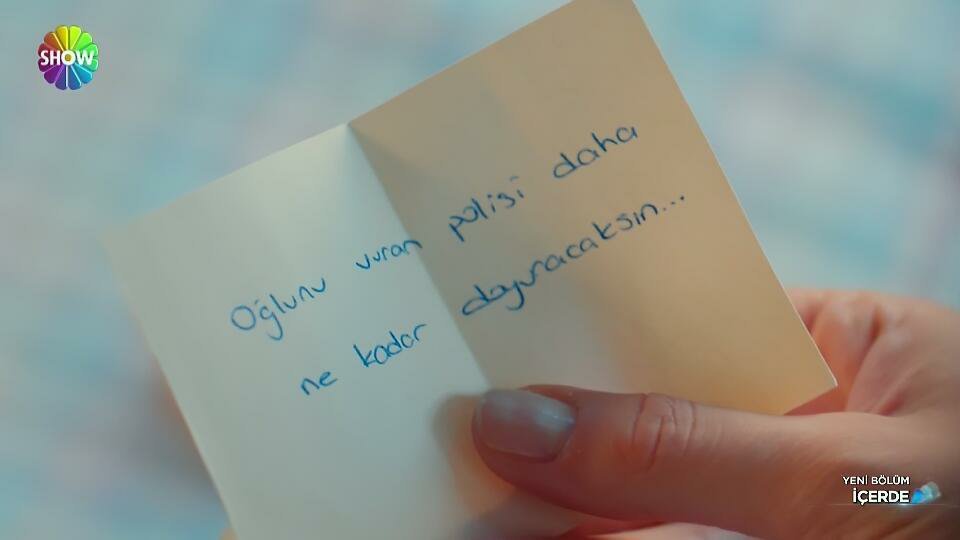 SHOW
Oğlunu vuran polisi daha
ne kadar doyuracaksın...
YENİ BÖLÜM
İÇERDE